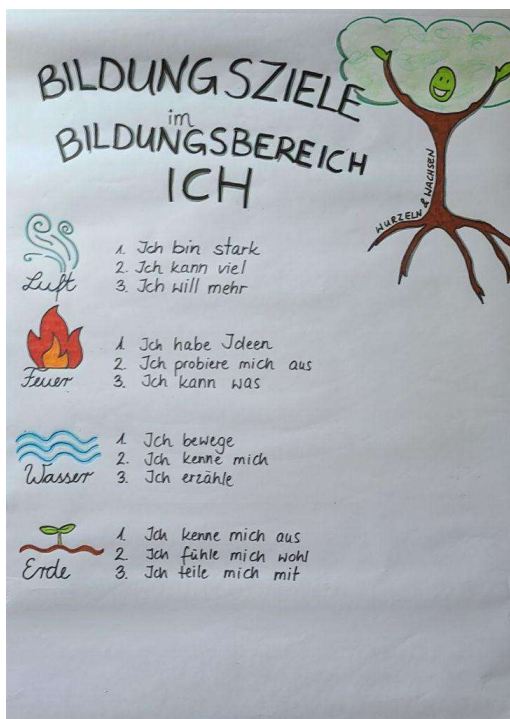 BILDUNGSZIELE
im
BILDUNGSBEREICH
ICH
WURZELN & WACHSEN
Luft
1. Ich bin stark
2. Ich kann viel
3. Ich will mehr
Feuer
1. Ich habe Ideen
2. Ich probiere mich aus
3. Ich kann was
Wasser
1. Ich bewege
2. Ich kenne mich
3. Ich erzähle
Erde
1. Ich kenne mich aus
2. Ich fühle mich wohl
3. Ich teile mich mit